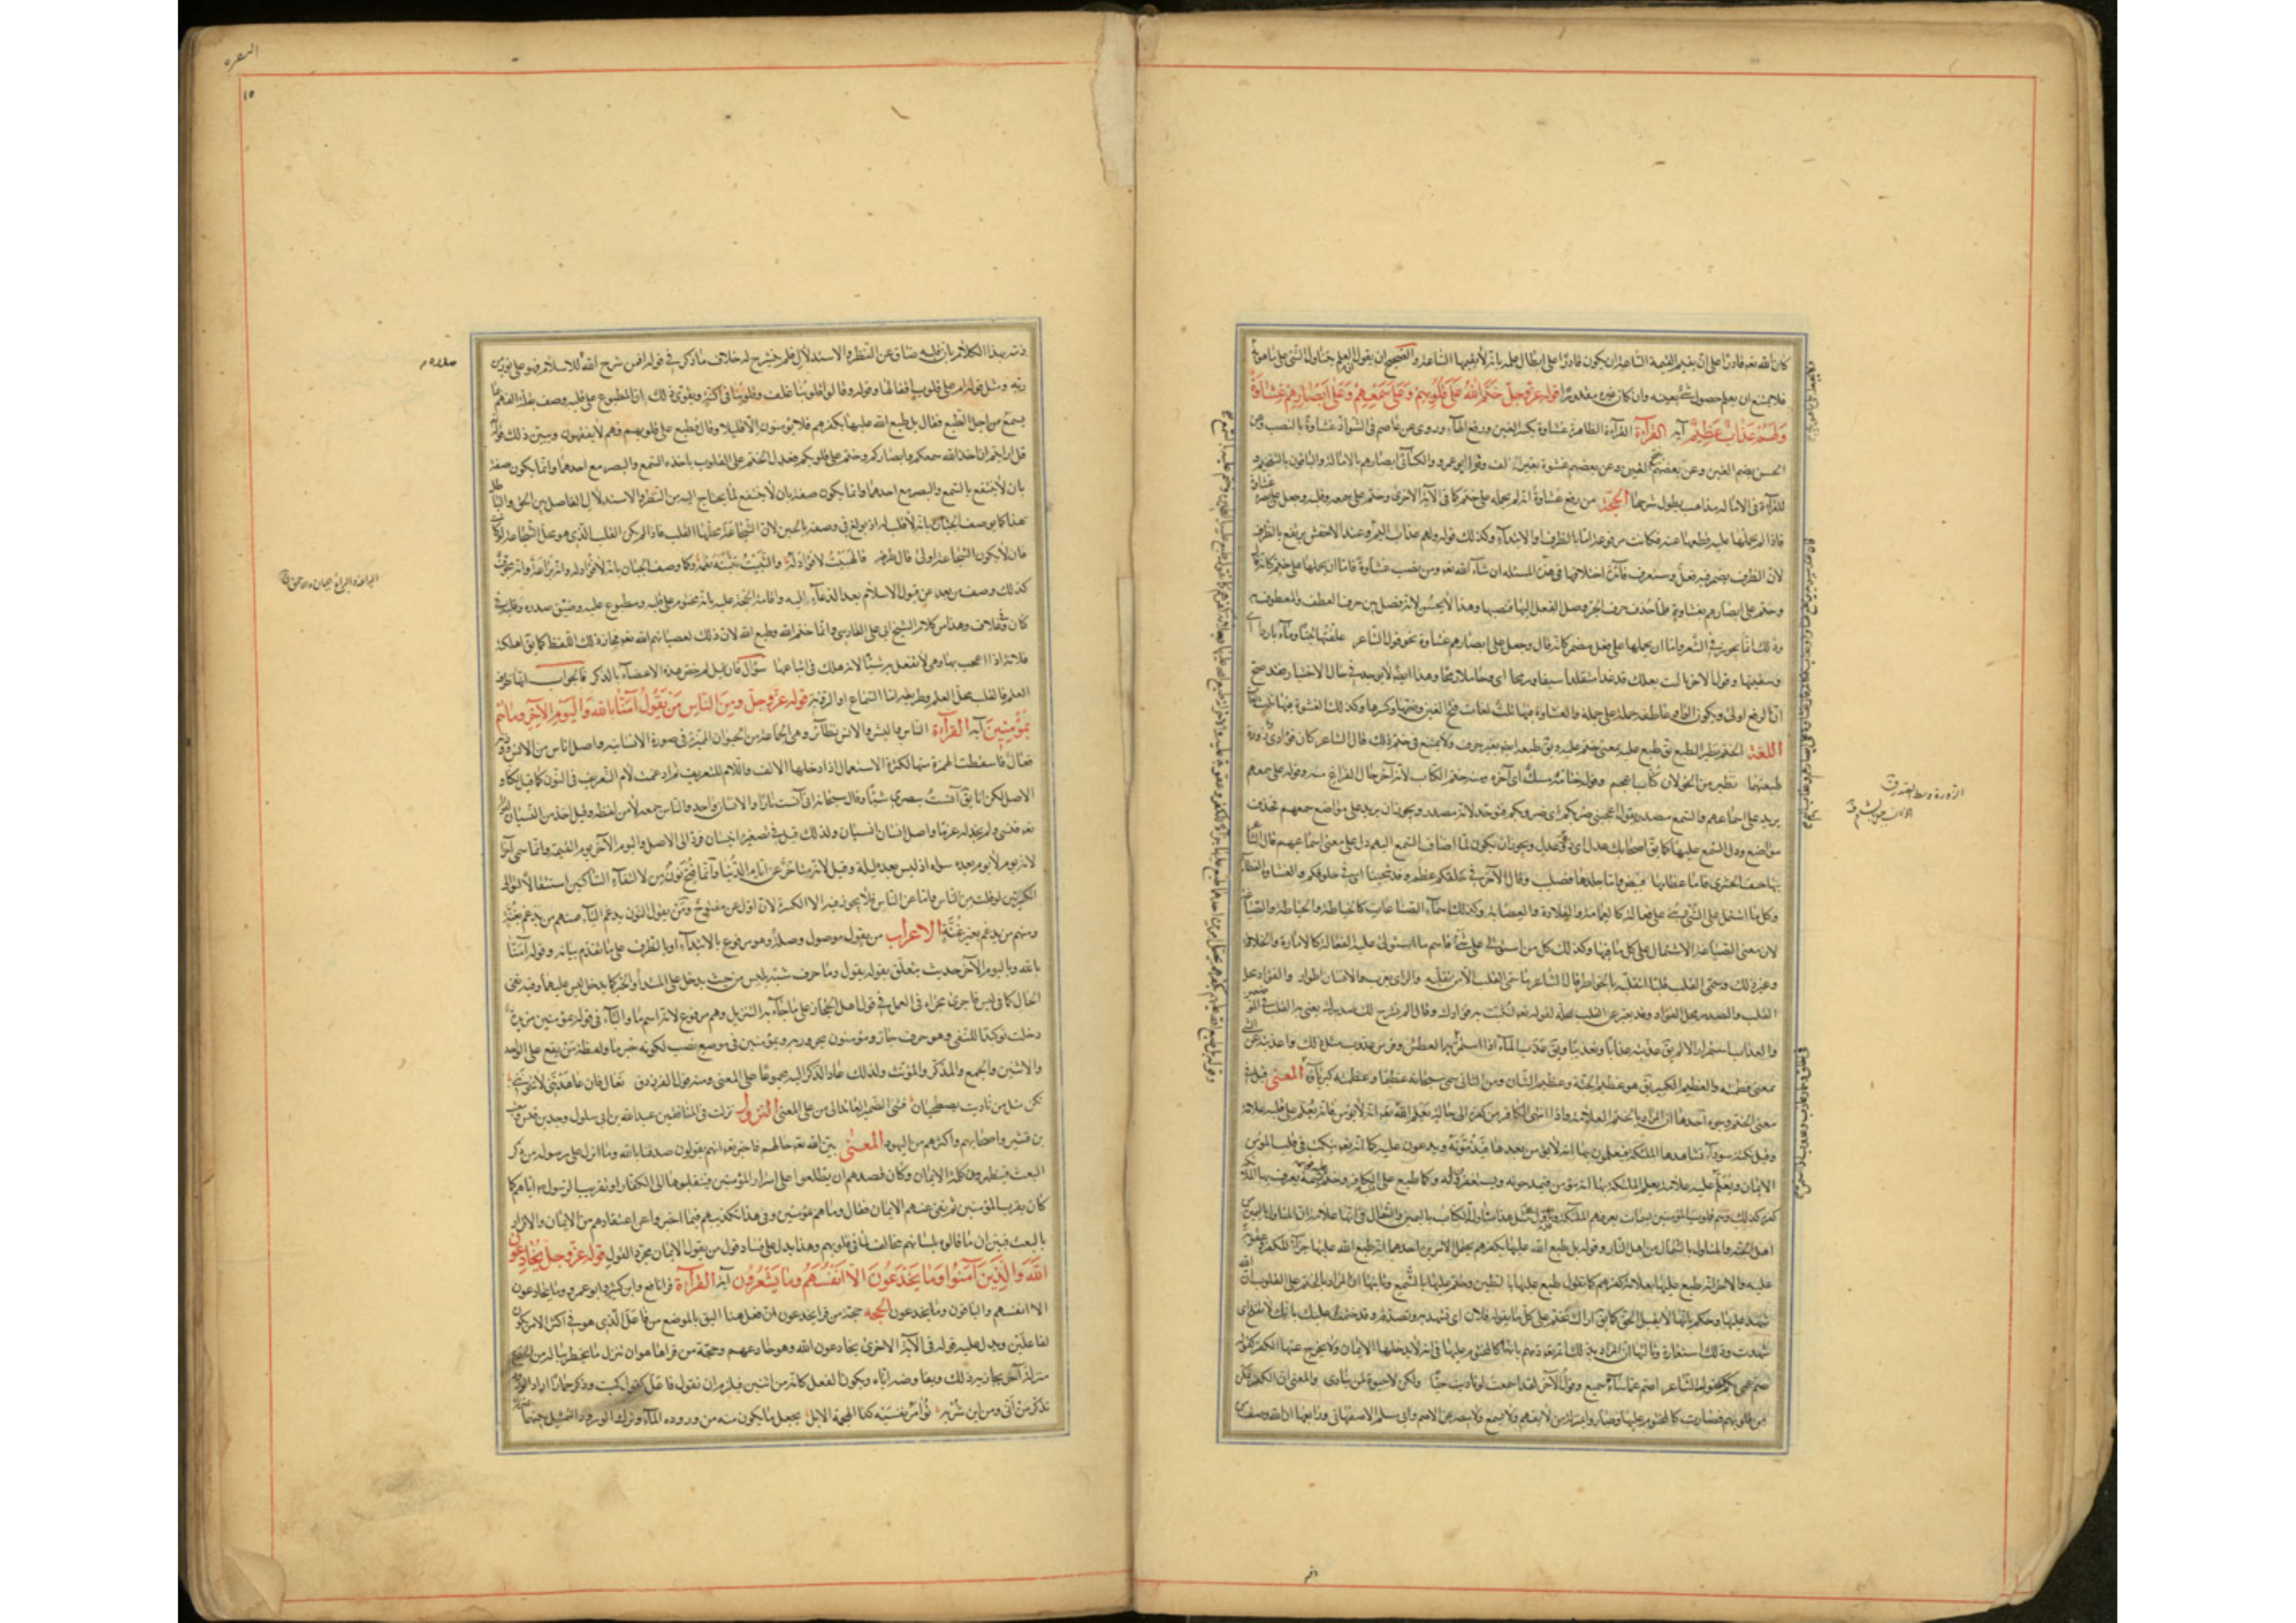 كان الله تعالى قادرا على ان يقيم القيمة الساعة ان يكون قادرا على ابطال علمه بانه لا يقيمها الساعة والصحيح ان يقول ان العلم يتناول الشئ على ما هو به
فلا يمتنع ان يعلم حصول شئ بعينه وان كان غيره مقدورا قوله عز وجل خَتَمَ اللهُ عَلَى قُلُوبِهِمْ وَعَلَى سَمْعِهِمْ وَعَلَى أَبْصَارِهِمْ غِشَاوَةٌ
وَلَهُمْ عَذَابٌ عَظِيمٌ آية القرآءة القرآءة الظاهرة غشاوة بكسر الغين ورفع الهآء وروى عن عاصم فى الشواذ غشاوة بالنصب وعن
الحسن بضم الغين وعن بعضهم بفتح الغين وعن بعضهم غشوة بغير الف وقرا ابو عمرو والكسائى ابصارهم بالامالة والباقون بالتفخيم و
للقرآءة فى الامالة مذاهب يطول شرحها الحجة من رفع غشاوة انه لم يحمله على ختم كما فى الآية الاخرى وختم على سمعه وقلبه وجعل على بصره غشاوة
فاذا لم يحملها عليه قطعها عنه فكانت مرفوعة اما بالظرف او بالابتدآء وكذلك قوله ولهم عذاب اليم وعند الاخفش يرتفع بالظرف
لان الظرف يضمر فيه فعل وستعرف اختلافها فى هذه المسئلة ان شآء الله تعالى ومن نصب غشاوة فاما ان يحملها على ختم كانه قال
وختم على ابصارهم بغشاوة فلما حذف حرف الجر وصل الفعل اليها فنصبها وهذا لا يحسن لانه فصل بين حرف العطف والمعطوف به
وذلك انما يجوز فى الشعر واما ان يحملها على فعل مضمر كانه قال وجعل على ابصارهم غشاوة نحو قول الشاعر علفتها تبنا ومآء باردا اى
وسقيتها وقول الآخر يا ليت بعلك قد غدا متقلدا سيفا ورمحا اى وحاملا رمحا وهذا ايضا لا يوجد فى حال الاختيار فقد صح
ان الرفع اولى ويكون الواو عاطفة جملة على جملة والغشاوة فيها ثلث لغات فتح الغين وضمها وكسرها وكذلك الغشوة فيها ثلث لغات
اللغة الختم نظير الطبع يق طبع عليه بمعنى ختم عليه ويق طبعه ايضا بغير حرف ولا يمتنع فى ختم ذلك قال الشاعر كان قرادى زوره
طبعتهما بطين من الجولان كتاب اعجم وقوله ختامه مسك اى آخره ومنه ختم الكتاب لانه آخر حال الفراغ منه وقوله على سمعهم
يريد على اسماعهم والسمع مصدر تقول يعجبنى ضربكم اى ضروبكم فتوحد لانه مصدر ويجوز ان يريد على مواضع سمعهم فحذف
مواضع ودل السمع عليها كما يق اصحابك عدل اى ذوو عدل ويجوز ان يكون لما اضاف السمع اليهم دل على معنى اسماعهم قال الشاعر
بها جيف الحسرى فاما عظامها فبيض واما جلدها فصليب وقال الآخر فى حلقكم عظم وقد شجينا اى فى حلوقكم والغشاوة الغطآء
وكل ما اشتمل على الشئ بنى على فعالة كالعمامة والقلادة والعصابة وكذلك اسمآء الصناعات كالخياطة والحياطة والقصارة
لان معنى الصناعة الاشتمال على كل ما فيها وكذلك كل من استولى على شئ فاسم ما استولى عليه الفعالة كالامارة والخلافة
وغير ذلك وسمى القلب قلبا لتقلبه بالخواطر قال الشاعر ما سمى القلب الا من تقلبه والراى يعزب والانسان اطوار والفؤاد محل
القلب والصدر محل الفؤاد وقد يعبر عن القلب بمحله لقوله تعالى لنثبت به فؤادك وقال الم نشرح لك صدرك يعنى به القلب فى الموضعين
والعذاب استمرار الالم يق عذبته عذابا وتعذيبا ويق عذب المآء اذا استمر فى العطش وفرس عذوب مثل ذلك واعذبته عن الشئ
بمعنى فطمته والعظيم الكبير يق هو عظيم الجثة وعظيم الشان ومن الثانى سمى سبحانه عظيما وعظمته كبريآؤه المعنى قيل فى
معنى الختم وجوه احدها ان المراد بالختم العلامة واذا انتهى الكافر من كفره الى حالة يعلم الله تعالى انه لا يؤمن فانه يعلم على قلبه علامة
وقيل نكتة سودآء تشاهدها الملئكة فيعلمون بها انه لا يؤمن بعدها فيذمونه ويدعون عليه كما انه تعالى يكتب فى قلب المؤمن
الايمان ويعلم عليه علامة يعلم الملئكة بها انه مؤمن فيمدحونه ويستغفرون له وكما طبع على قلب الكافر وختم
اهل الجنة والمناول بالشمال من اهل النار وقوله بل طبع الله عليها بكفرهم يحتمل الامرين احدهما انه طبع الله عليها جزآء للكفر وعقوبة
عليه والآخر انه طبع عليها بعلامة كفرهم كما تقول طبع عليها بالطين وختم عليها بالشمع وثانيها ان المراد بالختم على القلوب ان الله
شهد عليها وحكم بانها لا يقبل الحق كما يق اراك تختم على كل ما يقوله فلان اى تشهد به وتصدقه وقد ختمت عليك بانك لا تفلح اى
شهدت وذلك استعارة وثالثها ان المراد بذلك انه تعالى ذمهم بانها كالمختوم عليها فى انه لا يدخلها الايمان ولا يخرج عنها الكفر كقوله
صم بكم عمى وكقول الشاعر اصم عما سآءه سميع وقول الآخر لقد اسمعت لو ناديت حيا ولكن لا حيوة لمن ينادى والمعنى ان الكفر تمكن
من قلوبهم فصارت كالمختوم عليها وصاروا بمنزلة من لا يفهم ولا يسمع ولا يبصر عن الاصم وابى مسلم الاصفهانى ورابعها ان الله وصف من
البقرة
١٥
ذمه بهذا الكلام بان قلبه ضاق عن النظر والاستدلال فلم ينشرح له خلاف ما ذكر فى قوله افمن شرح الله صدره للاسلام فهو على نور من
ربه ومثل قوله ام على قلوب اقفالها وقوله وقالوا قلوبنا غلف وقلوبنا فى اكنة ويقوى ذلك ان المطبوع على قلبه وصف بقلة الفهم بما
يسمع من اجل الطبع فقال بل طبع الله عليها بكفرهم فلا يؤمنون الا قليلا وقال فطبع على قلوبهم فهم لا يفقهون ويبين ذلك قوله
قل ارايتم ان اخذ الله سمعكم وابصاركم وختم على قلوبكم فعدل الختم على القلوب باخذه السمع والبصر مع احدهما وانما يكون صفته
بان لا ينتفع بالسمع والبصر مع احدهما وانما يكون صفته بان لا ينتفع لما يحتاج اليه من النظر والاستدلال الفاصل بين الحق والباطل
هذا كما يوصف الجبان بانه لا قلب له اذ بولغ فى وصفه بالجبن لان الشجاعة محلها القلب فاذا لم يكن القلب الذى هو محل الشجاعة لو كانت
فان لا يكون الشجاعة اولى قال طرفة فالهبيت لا فؤاد له والثبيت ثبته فهمه وكما وصف الجبان بانه لا فؤاد له وانه يراعة وانه مجوف
كذلك وصف من بعد عن قبول الاسلام بعد الدعآء اليه واقامة الحجة عليه بانه مختوم على قلبه ومطبوع عليه وضيق صدره وقلبه فى
كنان وفى غلاف وهذا من كلام الشيخ ابى على الفارسى وانما ختم الله وطبع الله لان ذلك لعصيانهم الله تعالى فجاز ذلك اللفظ كما يق اهلكته
فلانة اذا اعجب بها وهى لا تفعل به شيئا لانه هلك فى اتباعها سؤال فان قيل لم خص هذه الاعضآء بالذكر فالجواب انها طرق
العلم فالقلب محل العلم وطريقه اما السماع او الرؤية قوله عز وجل وَمِنَ النَّاسِ مَنْ يَقُولُ آمَنَّا بِاللهِ وَبِالْيَوْمِ الْآخِرِ وَمَا هُمْ
بِمُؤْمِنِينَ آية القرآءة الناس والبشر والانس نظآئر وهى الجماعة من الحيوان المتميزة فى صورة الانسانية واصل الناس من الاناس وزنه
فعال فاسقطت الهمزة منها لكثرة الاستعمال اذا دخلها الالف واللام للتعريف ثم ادغمت لام التعريف فى النون كما قيل لكنا و
الاصل لكن انا يق آنست ببصرى شيئا وقال سبحانه انى آنست نارا والانسان واحد والناس جمعه لا من لفظه وقيل اخذ من النسيان لقوله
تعالى فنسى ولم نجد له عزما واصل انسان انسيان ولذلك قيل فى تصغيره انيسيان فرد الى الاصل واليوم الآخر يوم القيمة وانما سمى آخرا
لانه يوم لا يوم بعده سواه اذ ليس بعده ليلة وقيل لانه متاخر عن ايام الدنيا وانما فتح نون من لالتقآء الساكنين استثقالا لتوالى
الكسرتين لو قلت من الناس فاما عن الناس فلا يجوز فيه الا الكسرة لان اول عن مفتوح ومن يقول النون يدغم اليآء فمنهم من يدغم بغنة
ومنهم من يدغم بغير غنة الاعراب من يقول موصول وصلة وهو مرفوع بالابتدآء او بالظرف على ما تقدم بيانه وقوله آمنا
بالله وباليوم الآخر حديث يتعلق بقوله يقول وما حرف شبه بليس من حيث يدخل على المبتدأ والخبر كما يدخل ليس عليهما وفيه نفى
الحال كما فى ليس فاجرى مجراه فى العمل فى قول اهل الحجاز على ما جآء به التنزيل وهم مرفوع لانه اسم ما والبآء فى قوله بمؤمنين مزيدة
دخلت توكيدا للنفى وهو حرف جار ومؤمنون مجرور به وبمؤمنين فى موضع نصب لكونه خبر ما ولفظة من يقع على الواحد
والاثنين والجمع والمذكر والمؤنث ولذلك عاد الذكر اليه مجموعا على المعنى ومنه قول الفرزدق تعال فان عاهدتنى لا تخوننى
نكن مثل من يا ذئب يصطحبان فثنى الضمير العائد الى من على المعنى النزول نزلت فى المنافقين عبد الله بن ابى سلول وجد بن قيس ومعتب
بن قشير واصحابهم واكثرهم من اليهود المعنى بين الله تعالى حالهم فاخبر تعالى انهم يقولون صدقنا بالله وما انزل على رسوله من ذكر
البعث فيظهرون كلمة الايمان وكان قصدهم ان يطلعوا على اسرار المؤمنين فينقلوها الى الكفار او تقريب الرسول اياهم كما
كان يقرب المؤمنين ثم نفى عنهم الايمان فقال وما هم بمؤمنين وفى هذا تكذيبهم فيما اخبروا عن اعتقادهم من الايمان والاقرار
بالبعث فبين ان ما قالوه بلسانهم مخالف لما فى قلوبهم وهذا يدل على فساد قول من يقول الايمان مجرد القول قوله عز وجل يُخَادِعُونَ
اللهَ وَالَّذِينَ آمَنُوا وَمَا يَخْدَعُونَ إِلَّا أَنْفُسَهُمْ وَمَا يَشْعُرُونَ آية القرآءة قرا نافع وابن كثير وابو عمرو وما يخادعون
الا انفسهم والباقون وما يخدعون الحجة حجة من قرا يخدعون ان فعل هنا اليق بالموضع من فاعل الذى هو فى اكثر الامر يكون
لفاعلين ويدل عليه قوله فى الآية الاخرى يخادعون الله وهو خادعهم وحجة من قراها هو ان ينزل ما يخطر بباله من الخدع
منزلة آخر يجازيه ذلك ويفاوضه اياه ويكون الفعل كانه من اثنين فيلزم ان تقول فاعل كقول كميت وذكر حمارا اراد الورود
تذكر من انى ومن اين شربه يؤامر نفسيه كذى الهجمة الابل يجعل ما يكون منه من وروده المآء وترك الورود والتمثيل بينهما